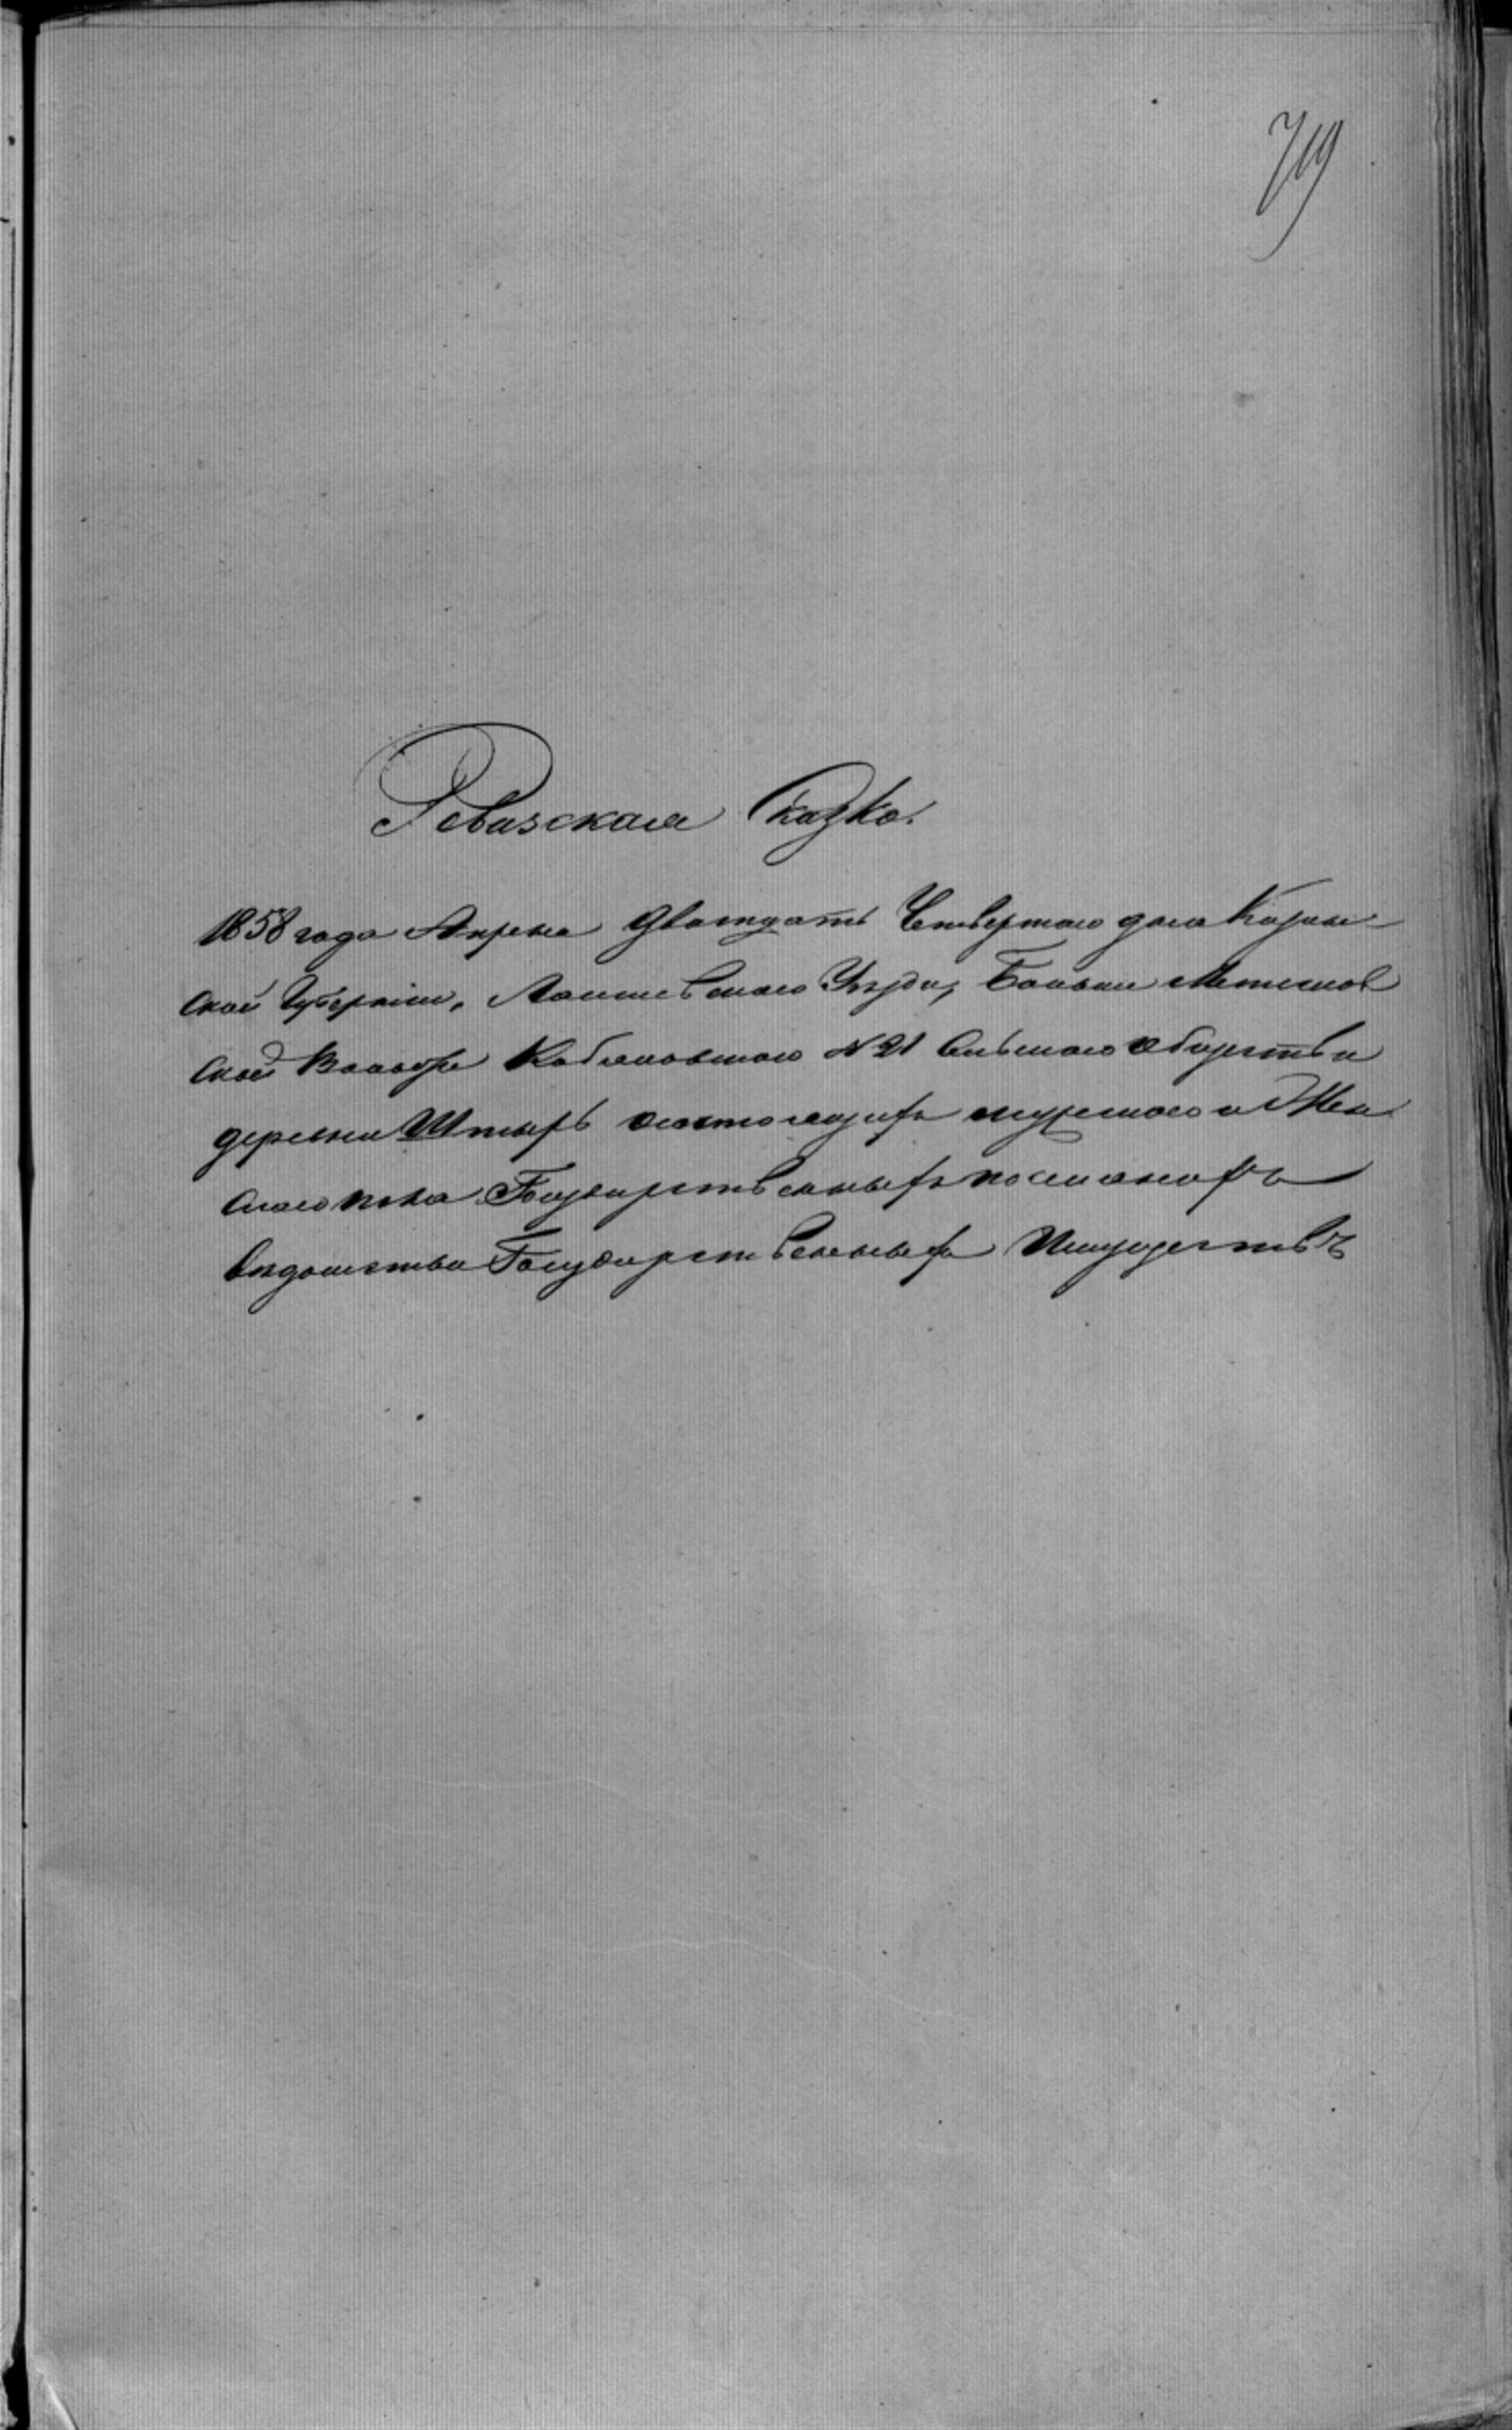 719
Ревизская Сказка.
1858 года Апреля дватцать Четвертаго дня Казан-
ской Губернiи, Лаишевскаго Уезда, Больше Метесков
ской Волости Кабановскаго № 21 Сельскаго общества
деревни Штырь о состоящихъ мужескаго и Жен
скаго пола Государственныхъ поселянахъ
ведомства Государственныхъ Имуществъ